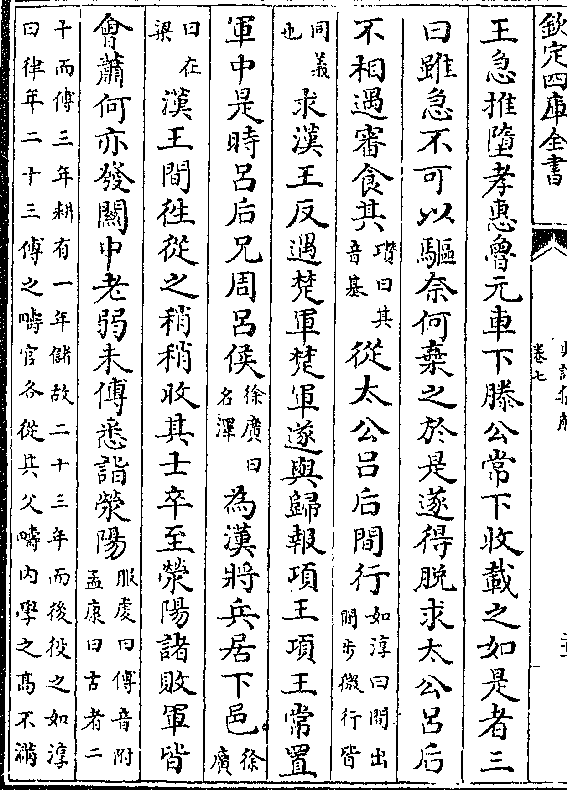 欽定四庫全書
卷七
王急推墮孝惠魯元車下滕公常下收載之如是者三
曰雖急不可以驅奈何棄之於是遂得脱求太公吕后
不相遇審食其瓚曰其音基從太公吕后間行如淳曰間出間步微行皆
同義也求漢王反遇楚軍楚軍遂與歸報項王項王常置
軍中是時吕后兄周吕侯徐廣曰名澤為漢將兵居下邑徐廣
曰在梁漢王間徃從之稍稍收其士卒至滎陽諸敗軍皆
會蕭何亦發關中老弱未傅悉詣滎陽服䖍曰傅音附孟康曰古者二
十而傅三年耕有一年儲故二十三年而後役之如淳曰律年二十三傅之疇官各從其父疇内學之髙不滿